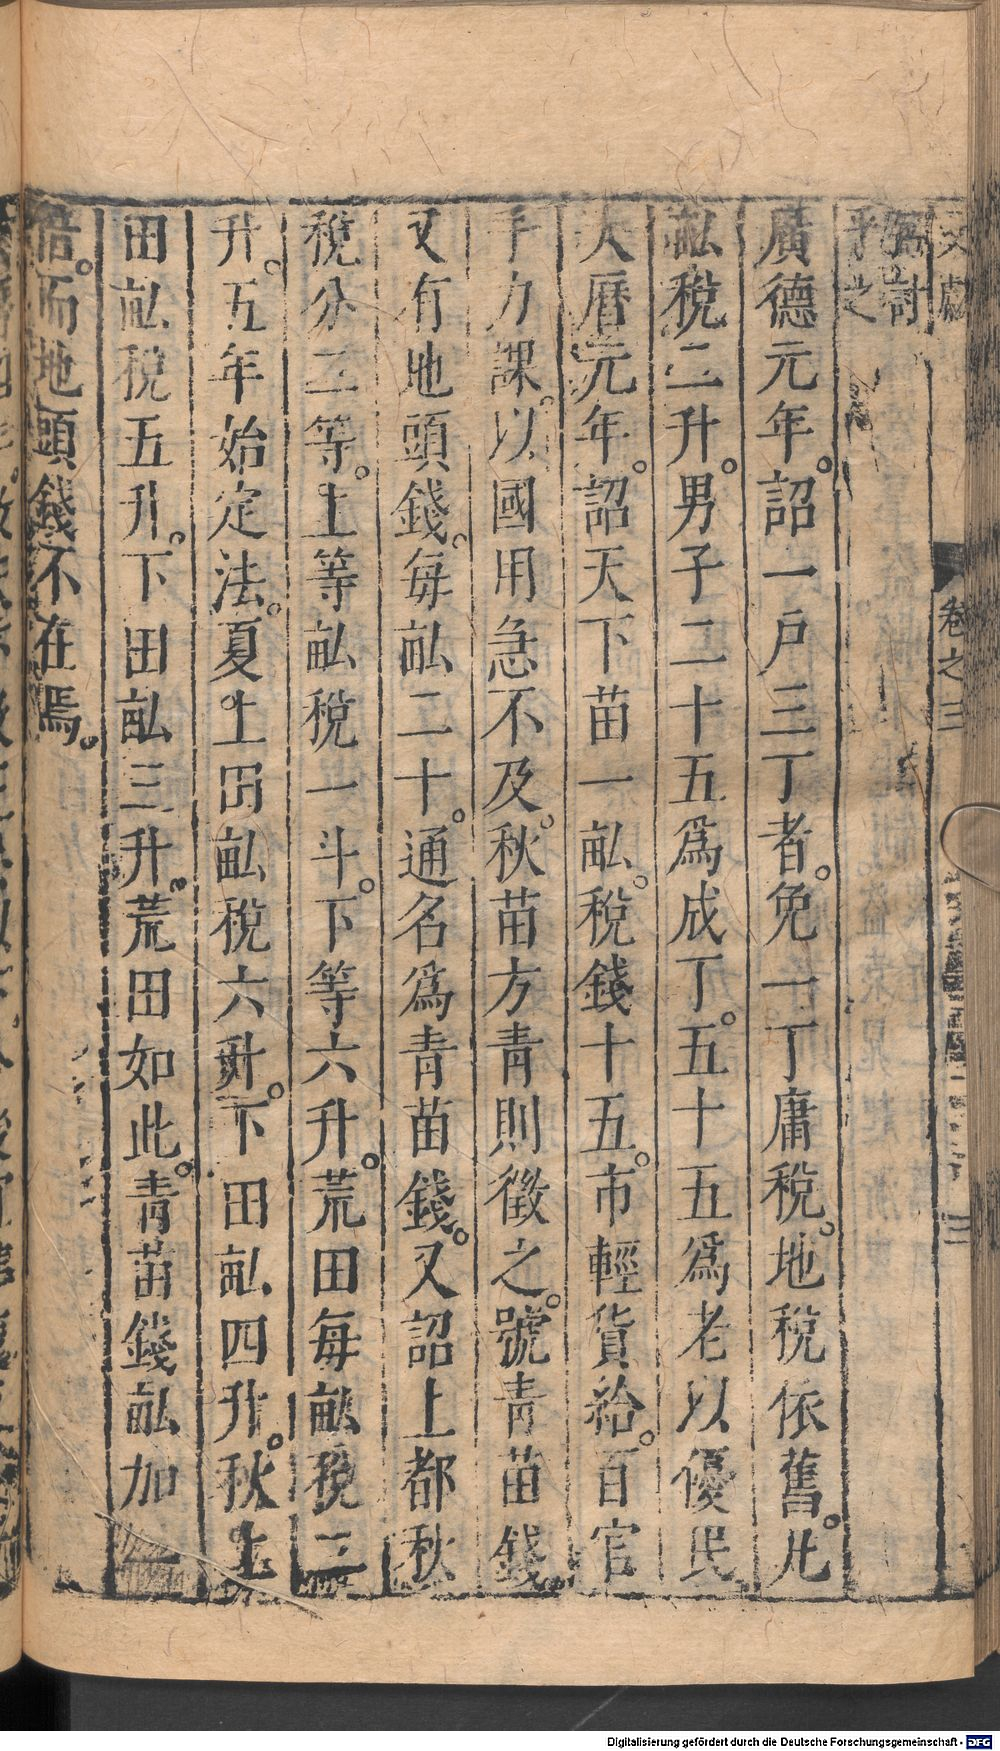 文獻
卷之三
三
偽討
乎之
廣德元年。詔一戶三丁者。免一丁庸稅。地稅依舊。凡
畝稅二升。男子二十五為成丁。五十五為老以優民
大曆元年。詔天下苗一畝。稅錢十五。市輕貨給。百官
手力課。以國用急不及。秋苗方青則徵之。號青苗錢
又有地頭錢。每畝二十。通名為青苗錢。又詔上都秋
稅分二等。上等畝稅一斗。下等六升。荒田每畝稅二
升。五年始定法。夏上田畝稅六升。下田畝四升。秋上
田畝稅五升。下田畝三升。荒田如此。青苗錢畝加一
倍。而地頭錢不在焉。
Digitalisierung gefördert durch die Deutsche Forschungsgemeinschaft - DFG